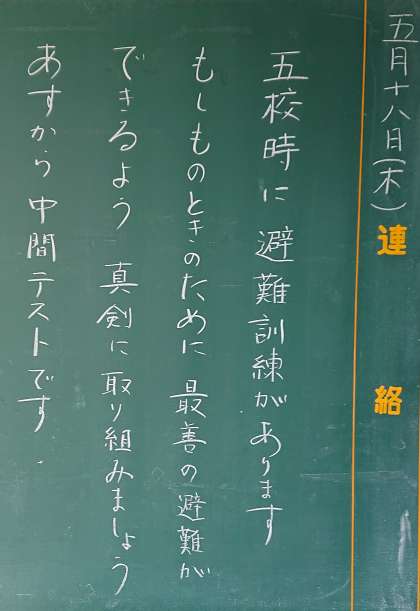 五月十八日(木)
連絡
五校時に避難訓練があります
もしものときのために最善の避難が
できるよう真剣に取り組みましょう
あすから中間テストです.